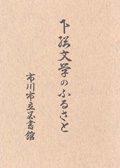 下総文学のふるさと
市川市立図書館